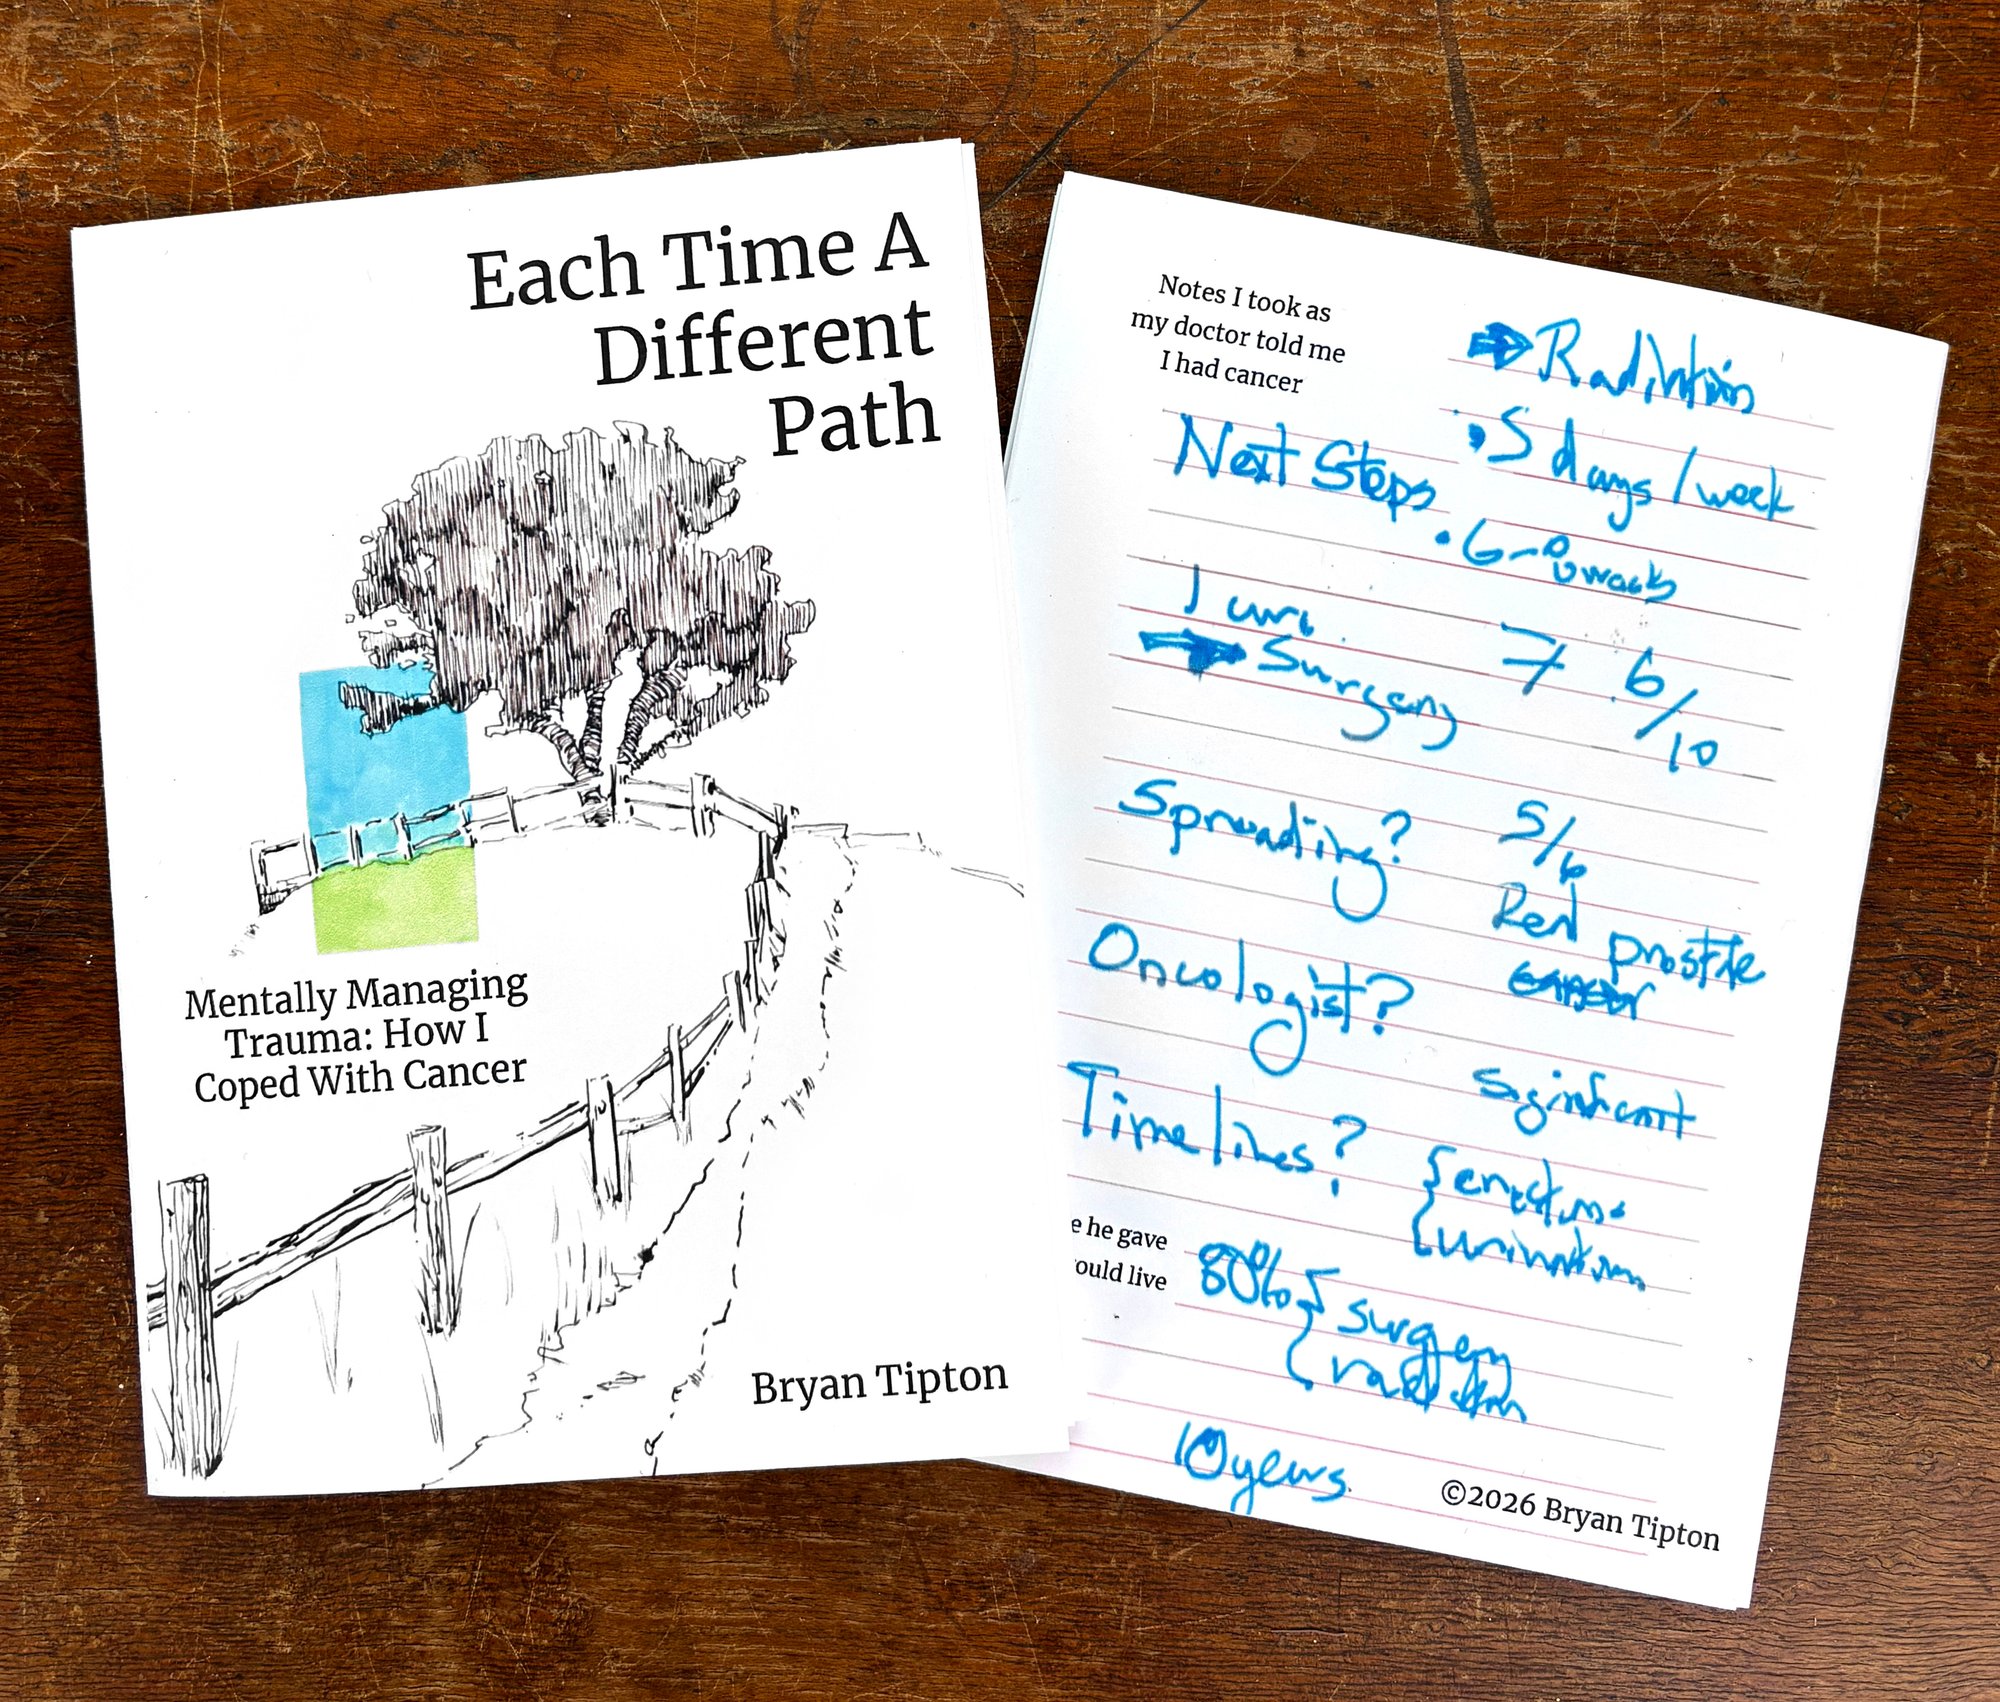 Each Time A
Different
Path
Mentally Managing
Trauma: How I
Coped With Cancer
Bryan Tipton
Notes I took as
my doctor told me
I had cancer
Radiation
5 days/week
Next Steps
6-8 weeks
Surgery
7 6/10
Spreading?
5/6
Red prostate
Oncologist?
Significant
Timelines?
{ erection
{ urination
e he gave
ould live
80% } surgery
} radiation
10 years.
©2026 Bryan Tipton